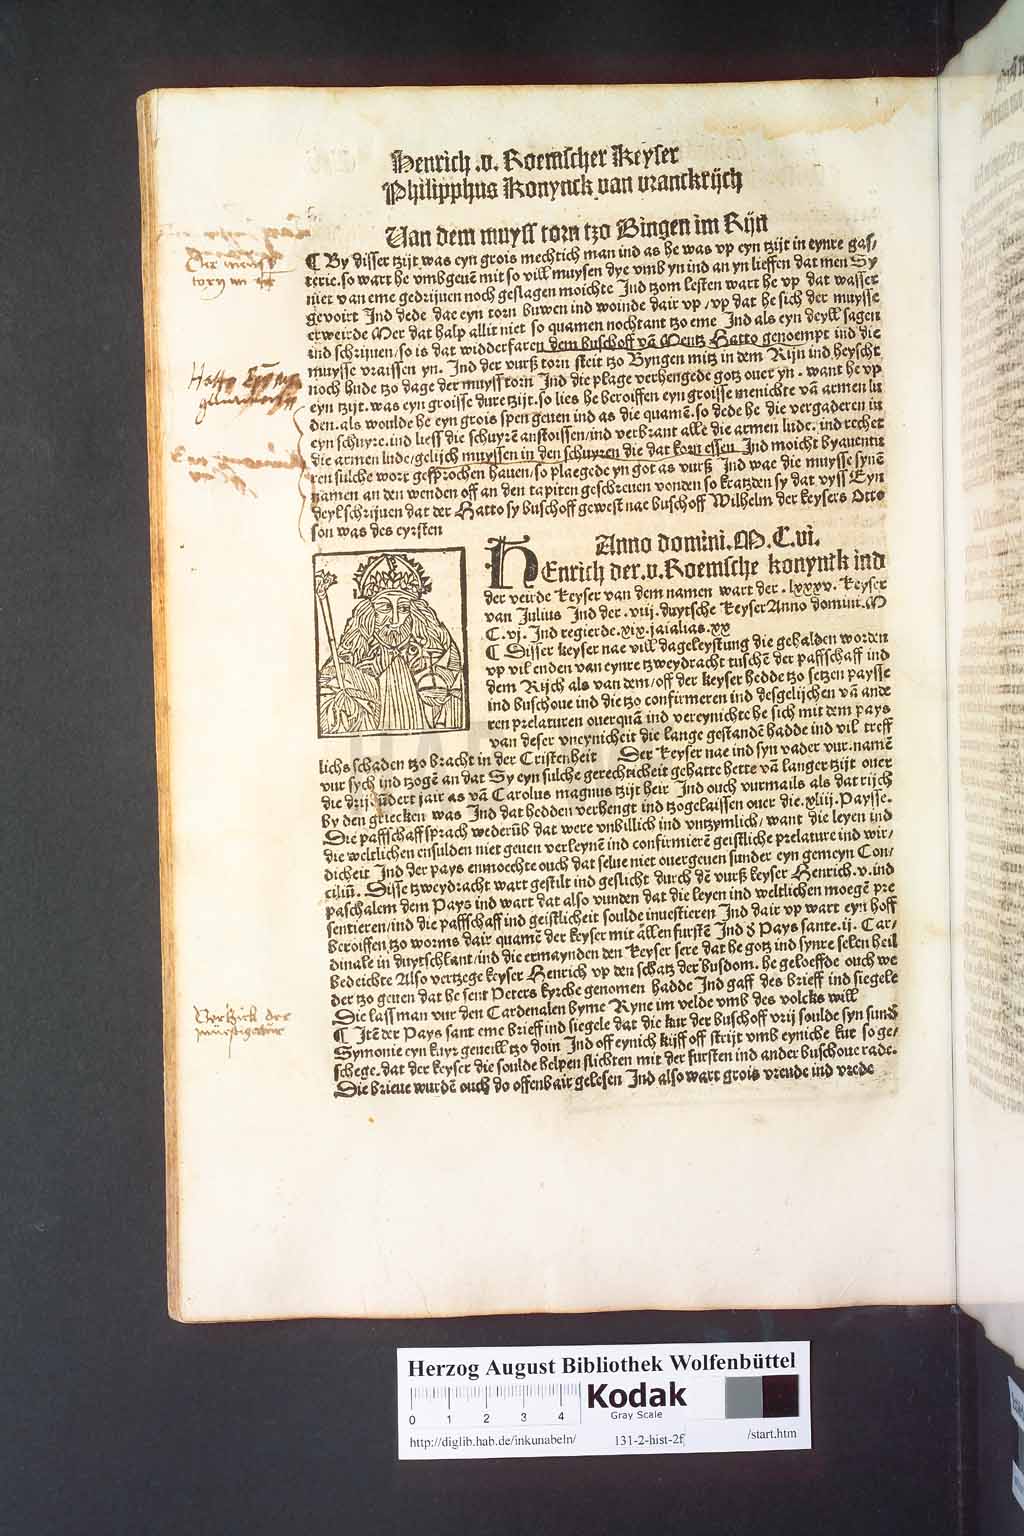 Henrich .v. Roemscher Keyser
Philipphus Konynck van vranckrijch
Van dem muyss torn tzo Bingen im Rijn
¶ By disser tzijt was eyn grois mechtich man ind as he was vp eyn tzijt in eynre gas/
terie. so wart he vmbgeuē mit so vill muysen dye vmb yn ind an yn lieffen dat men Sy
niet van eme gedrijuen noch geslagen moichte Ind tzom lesten wart he vp dat wasser
gevoirt Ind dede dae eyn torn buwen ind woinde dair vp / vp dat he sich der muysse
erweirde Mer dat halp allit niet so quamen nochtant tzo eme Ind als eyn deyll sagen
ind schrijuen/so is dat widderfaren dem buschoff vā Mentz Hatto genoempt ind die
muysse vraissen yn. Ind der vurß torn steit tzo Byngen mitz in dem Rijn ind heyscht
noch hude tzo dage der muyss torn Ind die plage verhengede gotz ouer yn. want he vp
eyn tzijt. was eyn groisse dure tzijt. so lies he beroiffen eyn groisse menichte vā armen lu
den. als woulde he eyn grois spen geuen ind as die quamē. so dede he die vergaderen in
eyn schuyre. ind liess die schuyrē anstoissen/ind verbrant alle die armen lude. ind rechet
die armen lude/gelijch muyssen in den schuyren die dat korn essen Ind moicht by auentu
ren sulche wort gesprochen hauen/so plaegede yn got as vurß Ind wae die muysse synē
namen an den wenden off an den tapiten geschreuen vonden so kratzden sy dat vyss Eyn
deyl schrijuen dat der Hatto sy buschoff gewest nae buschoff Wilhelm der keysers Otto
son was des eyrsten
Anno domini. M. C. vi.
HEnrich der .v. Roemsche konynck ind
der veirde keyser van dem namen wart der . lxxxv. keyser
van Julius Ind der .viij. duytsche keyser Anno domini. M
C. vj. Ind regierde .xix. jair alias. xx
¶ Disser keyser nae vill dageleystung die gehalden worden
vp vil enden van eynre tzweydracht tuschē der paffschaff ind
dem Rijch als van dem/off der keyser hedde tzo setzen paysse
ind buschoue ind die tzo confirmeren ind desgelijchen vā ande
ren prelaturen ouerquā ind vereynichte he sich mit dem pays
van deser vneynicheit die lange gestandē hadde ind vil treff
lichs schaden tzo bracht in der Cristenheit Der keyser nae ind syn vader vur. namē
vur sych ind tzogē an dat Sy eyn sulche gerechticheit gehatte hette vā langer tzijt ouer
die drij. hūdert jair as vā Carolus magnus tzijt heir Ind ouch vurmails als dat rijch
by den griecken was Ind dat hedden verhengt ind tzogelaissen ouer die .xliij. Paysse.
Die paffschaff sprach wederūb dat were vnbillich ind vntzymlich/ want die leyen ind
die weltlichen ensulden niet geuen verleynē ind confirmierē geistliche prelature ind wir/
dicheit Ind der pays enmoechte ouch dat selue niet ouergeuen sunder eyn gemeyn Con/
ciliū. Disse tzweydracht wart gestilt ind geslicht durch dē vurß keyser Henrich .v. ind
paschalem dem Pays ind wart dat also vunden dat die leyen ind weltlichen moegē pre
sentieren/ind die paffschaff ind geistlicheit soulde inuestieren Ind dair vp wart eyn hoff
beroiffen tzo worms dair quamē der keyser mit allen furstē Ind d' Pays sante .ij. Car/
dinale in duytschlant/ind die ermaynden den keyser sere dat he gotz ind synre selen heil
bedeichte Also vertzege keyser Henrich vp den schatz der busdom. he geloeffde ouch we
der tzo geuen dat he sent Peters kyrche genomen hadde Ind gaff des brieff ind siegele
Die lass man vur den Cardenalen byme Ryne im velde vmb des volcks will
¶ Itē der Pays sant eme brieff ind siegele dat die kur der buschoff vrij soulde syn sund
Symonie eyn kuyr geueill tzo doin Ind off eynich kijff off strijt vmb eyniche kur so ge/
schege. dat der keyser die soulde helpen slichten mit der fursten ind ander buschoue rade.
Die brieue wurdē ouch do offenbair gelesen Ind also wart grois vreude ind vrede
Herzog August Bibliothek Wolfenbüttel
0 1 2 3 4
Kodak
Gray Scale
http://diglib.hab.de/inkunabeln/ 131-2-hist-2f /start.htm